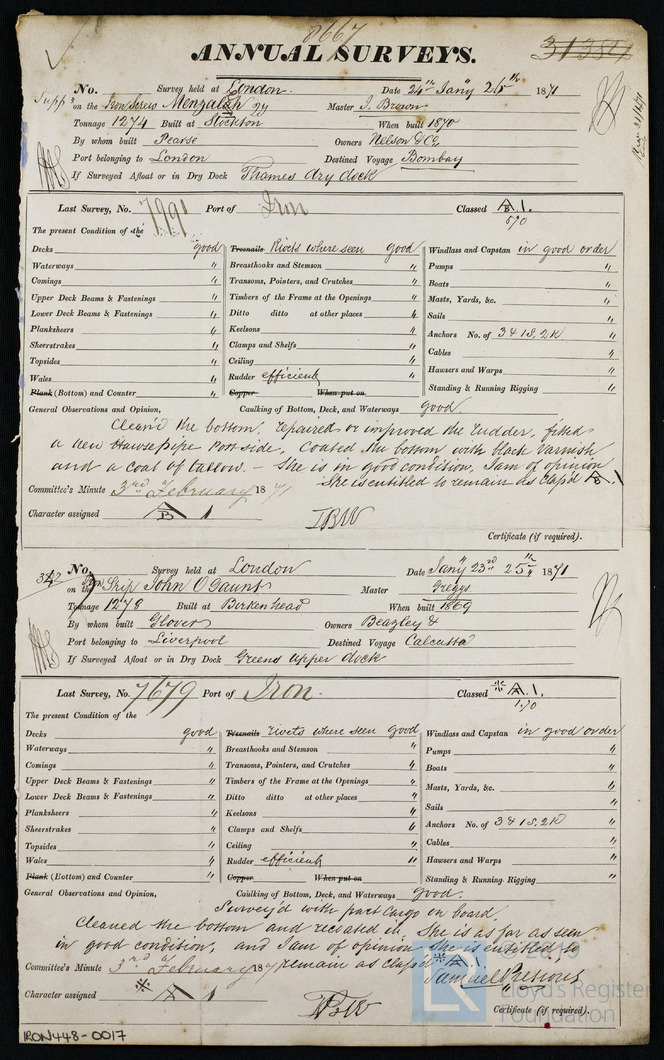 8667
ANNUAL SURVEYS.
31384
No. Survey held at London. Date 24th Jany 25th 1871
on the Iron Screw Master J. Brown
Tonnage 1274 Built at Stockton When built 1870
By whom built Pearse Owners Nelson & Co
Port belonging to London Destined Voyage Bombay
If Surveyed Afloat or in Dry Dock Thames dry dock
Last Survey, No. 7991 Port of Iron Classed A B 1.
The present Condition of the 570
Decks good Treenails Rivets where seen good Windlass and Capstan in good order
Waterways " Breasthooks and Stemson " Pumps "
Comings " Transoms, Pointers, and Crutches " Boats "
Upper Deck Beams & Fastenings " Timbers of the Frame at the Openings " Masts, Yards, &c. "
Lower Deck Beams & Fastenings " Ditto ditto at other places " Sails "
Planksheers " Keelsons " Anchors No. of 3 & 1 S, 2 K "
Sheerstrakes " Clamps and Shelfs " Cables "
Topsides " Ceiling " Hawsers and Warps "
Wales " Rudder efficient " Standing & Running Rigging "
Plank (Bottom) and Counter " Copper When put on
General Observations and Opinion, Caulking of Bottom, Deck, and Waterways good.
Cleand the bottom, repaired or improved the rudder, fitted
a new Hawsepipe Port side, Coated the bottom with black varnish
and a coat of tallow. – She is in good condition, I am of opinion
She is entitled to remain as clas'd A B 1
Committee's Minute 3rd February 1871
Character assigned A B 1
Certificate (if required).
No. Survey held at London Date Jany 23rd 25th 1871
on the Iron Ship John O Gaunt Master Greggs
Tonnage 1278 Built at Birkenhead When built 1869
By whom built Glover Owners Beazley &
Port belonging to Liverpool Destined Voyage Calcutta
If Surveyed Afloat or in Dry Dock Greens upper dock
Last Survey, No. 7679 Port of Iron. Classed A. 1.
The present Condition of the 1.70
Decks good Treenails rivets where seen good Windlass and Capstan in good order
Waterways " Breasthooks and Stemson " Pumps "
Comings " Transoms, Pointers, and Crutches " Boats "
Upper Deck Beams & Fastenings " Timbers of the Frame at the Openings " Masts, Yards, &c. "
Lower Deck Beams & Fastenings " Ditto ditto at other places " Sails "
Planksheers " Keelsons " Anchors No. of 3 & 1 S, 2 K "
Sheerstrakes " Clamps and Shelfs " Cables "
Topsides " Ceiling " Hawsers and Warps "
Wales " Rudder efficient " Standing & Running Rigging "
Plank (Bottom) and Counter " Copper When put on
General Observations and Opinion, Caulking of Bottom, Deck, and Waterways good.
Survey'd with part Cargo on board.
Cleaned the bottom and recoated it, She is as far as seen
in good condition, and I am of opinion She is entitled to
remain as clas'd A 1.
Committee's Minute 3rd February 1871
Samuel Pretious
Character assigned A 1
Lloyd's Register
Foundation
Certificate (if required).
IRON448-0017